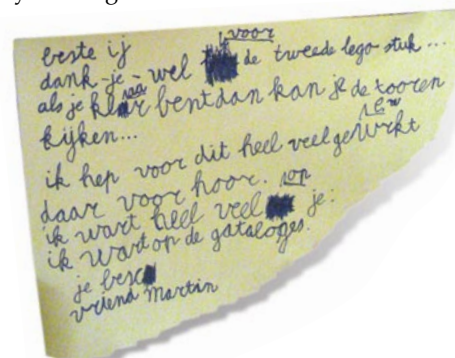 beste ij
voor
dank-je-wel de tweede lego stuk...
aa
als je klar bent dan kan je de tooren
kijken...
ew
ik hep voor dit heel veel ge rkt
daar voor hoor.
op
ik wart heel veel je:
ik wart op de gataloges.
je besc
vriend Martin